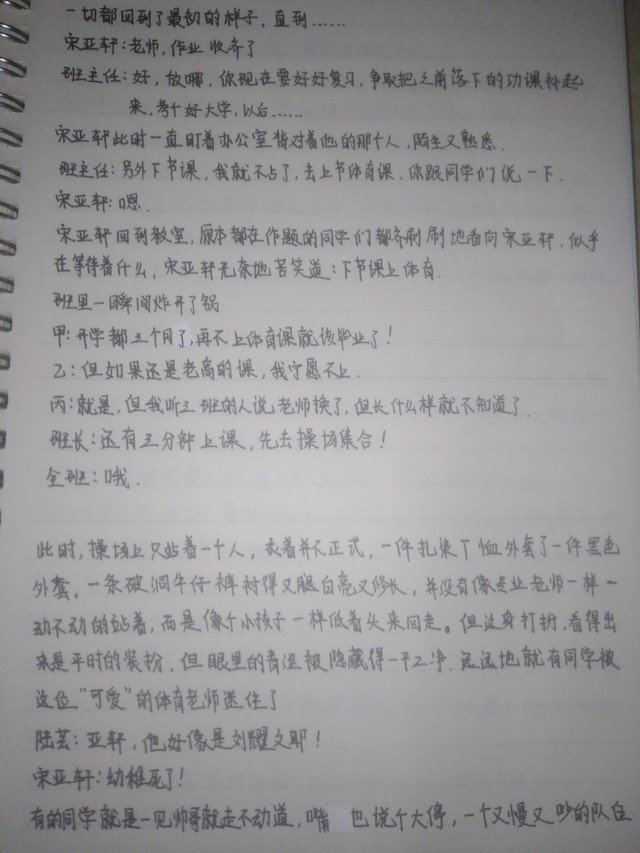 一切都回到了最初的样子，直到……
宋亚轩：老师，作业收齐了
班主任：好，放哪，你现在要好好复习，争取把之前落下的功课补起
来，考个好大学，以后……
宋亚轩此时一直盯着办公室背对着他的那个人，陌生又熟悉．
班主任：另外下节课，我就不占了，去上节体育课，你跟同学们说一下．
宋亚轩：嗯．
宋亚轩回到教室，原本都在作题的同学们都齐刷刷地看向宋亚轩，似乎
在等待着什么，宋亚轩无奈地苦笑道：下节课上体育．
班里一瞬间炸开了锅
甲：开学都三个月了，再不上体育课就该毕业了！
乙：但如果还是老高的课，我宁愿不上．
丙：就是，但我听三班的人说老师换了，但长什么样就不知道了．
班长：还有三分钟上课，先去操场集合！
全班：哦．
此时，操场上只站着一个人，衣着并不正式，一件扎染T恤外套了一件黑色
外套，一条破洞牛仔裤衬得又腿白亮又修长，并没有像专业老师一样一
动不动的站着，而是像个小孩子一样低着头来回走。但这身打扮，看得出
来是平时的装扮，但眼里的青涩被隐藏得一干二净．远远地就有同学被
这位“可爱”的体育老师迷住了
陆芸：亚轩，他好像是刘耀文耶！
宋亚轩：幼稚死了！
有的同学就是一见帅哥就走不动道，嘴 也说个大停，一个又慢又吵的队伍